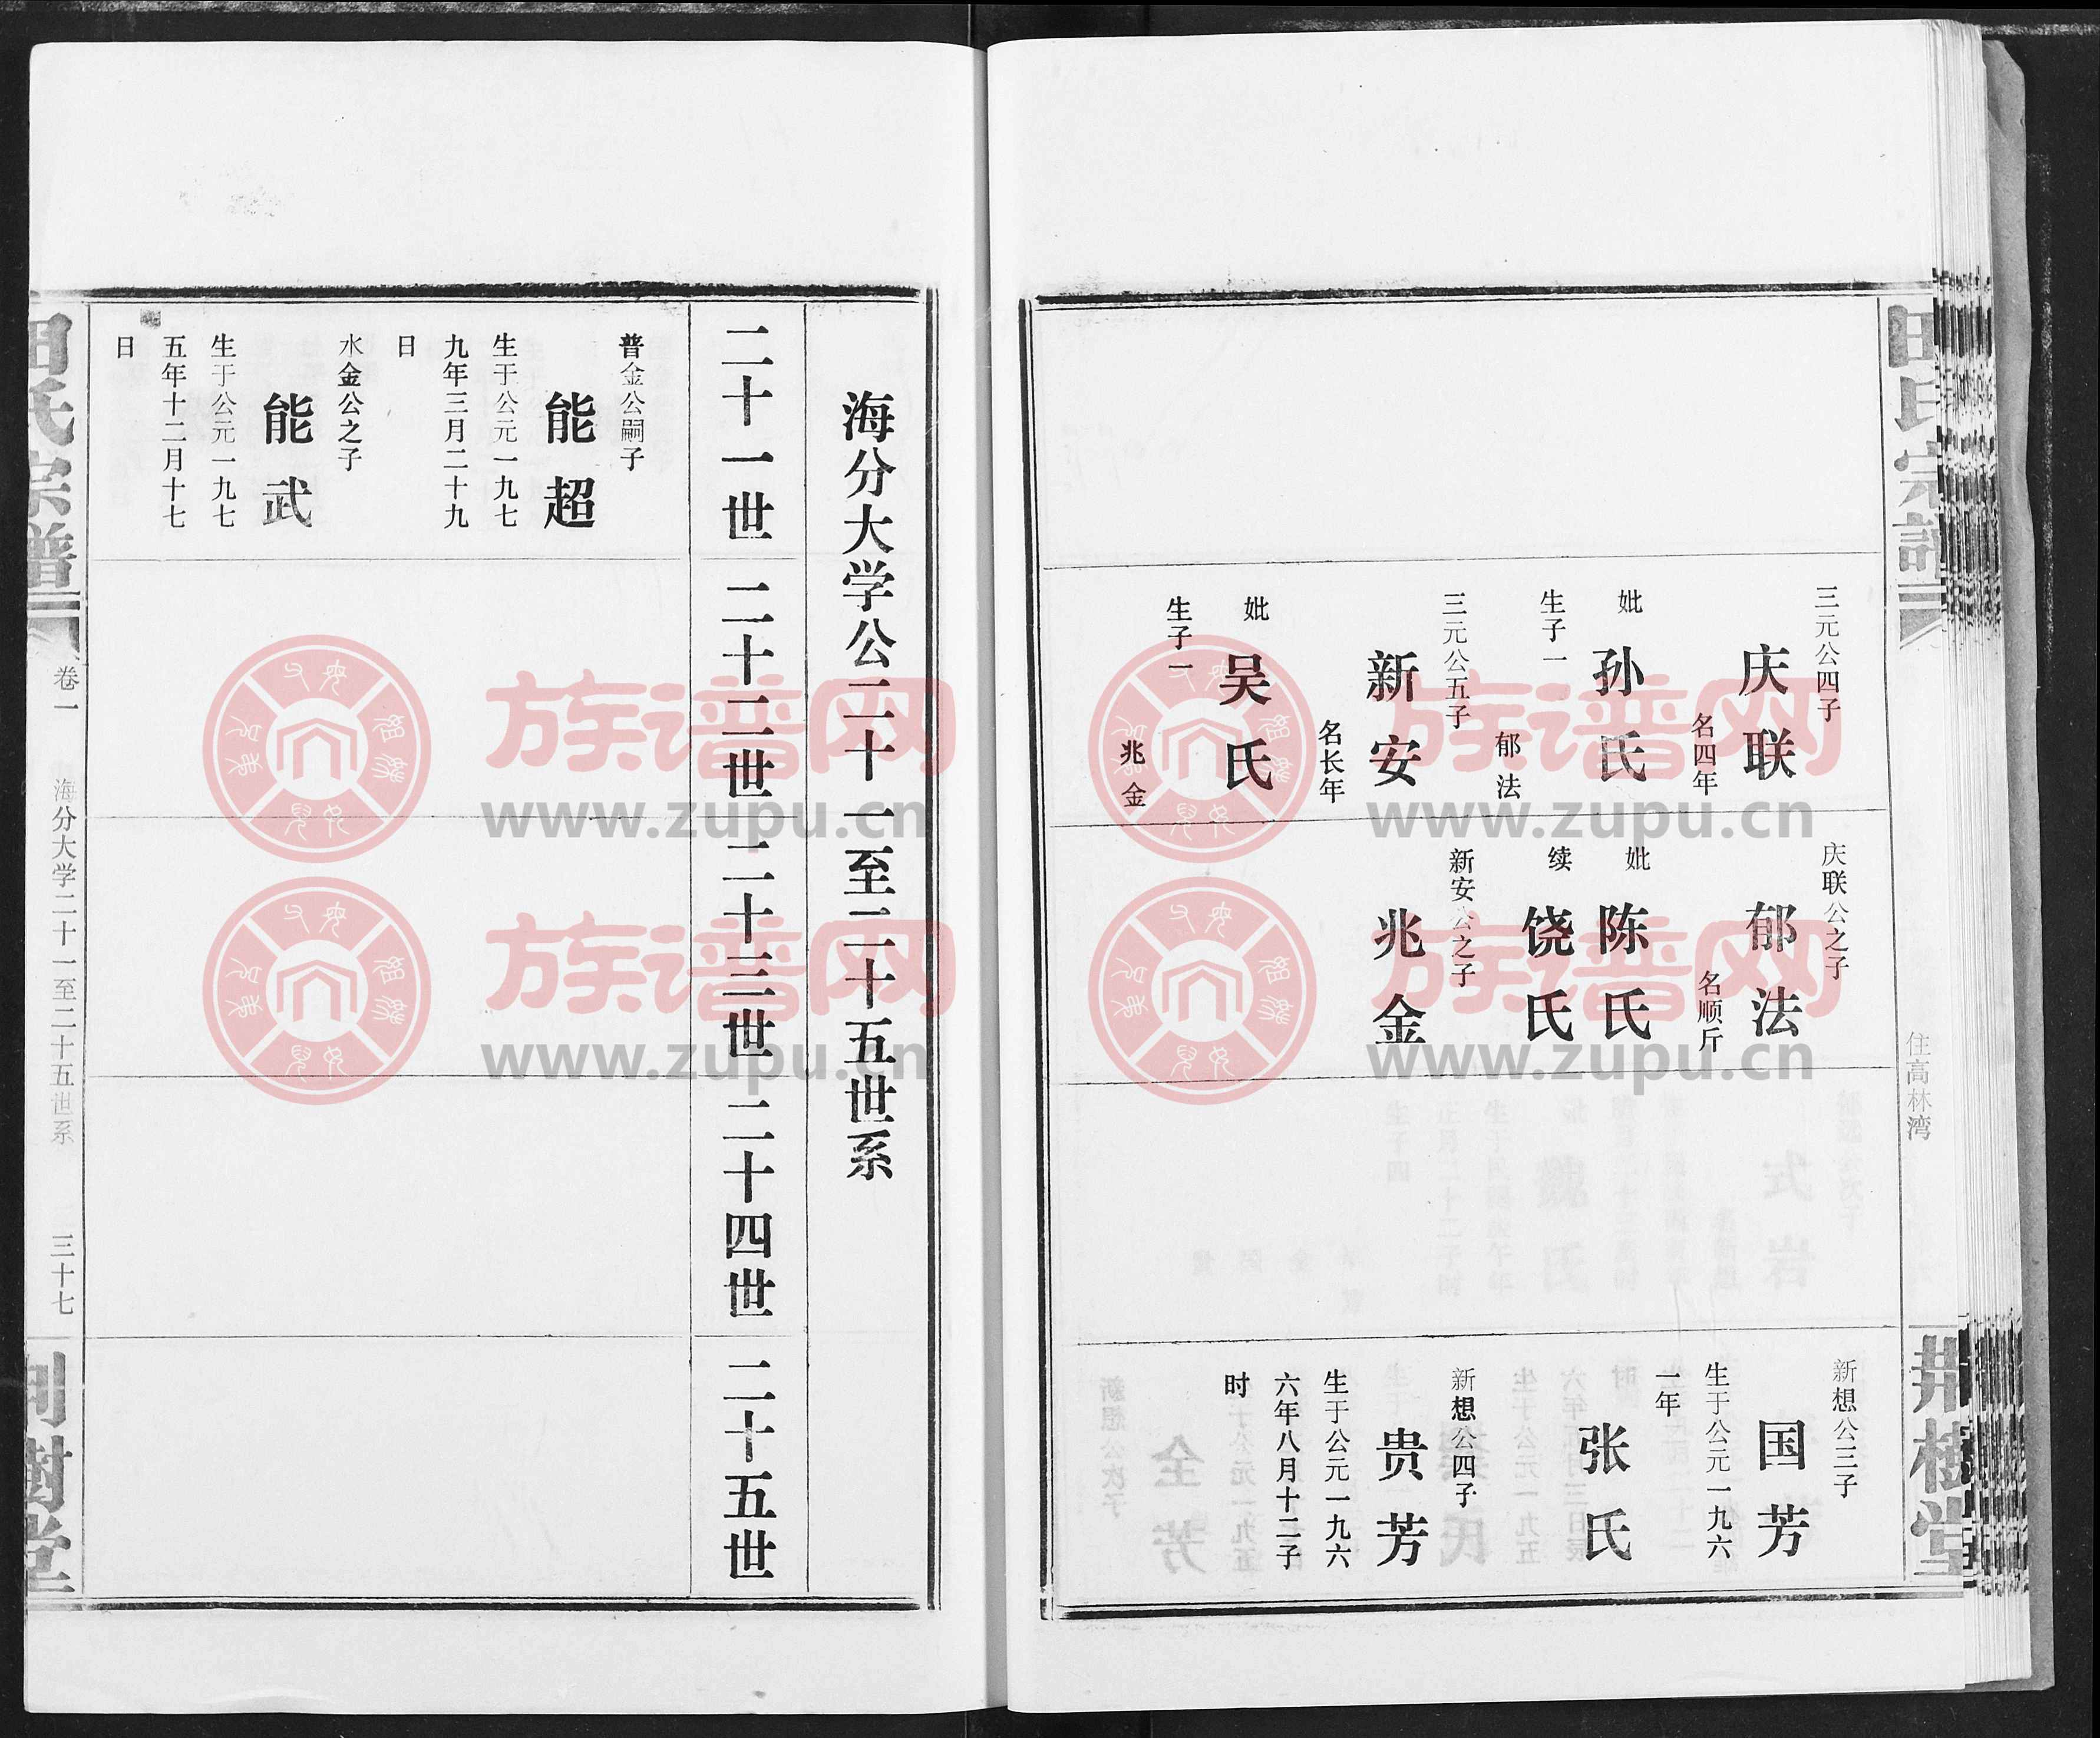 田氏宗谱
住高林湾
荆树堂
三元公四子
庆联
名四年
妣
孙氏
生子一
郁法
三元公五子
新安
名长年
妣
吴氏
生子一
兆金
庆联公之子
郁法
名顺斤
妣
陈氏
续
饶氏
新安公之子
兆金
新想公三子
国芳
生于公元一九六
一年
张氏
新想公四子
贵芳
生于公元一九六
六年八月十二子
时
海分大学公二十一至二十五世系
二十一世
二十二世
二十三世
二十四世
二十五世
普金公嗣子
能超
生于公元一九七
九年三月二十九
日
水金公之子
能武
生于公元一九七
五年十二月十七
日
田氏宗谱
卷一
海分大学二十一至二十五世系
三十七
荆树堂
族谱网
www.zupu.cn
族谱网
www.zupu.cn
族谱网
www.zupu.cn
族谱网
www.zupu.cn